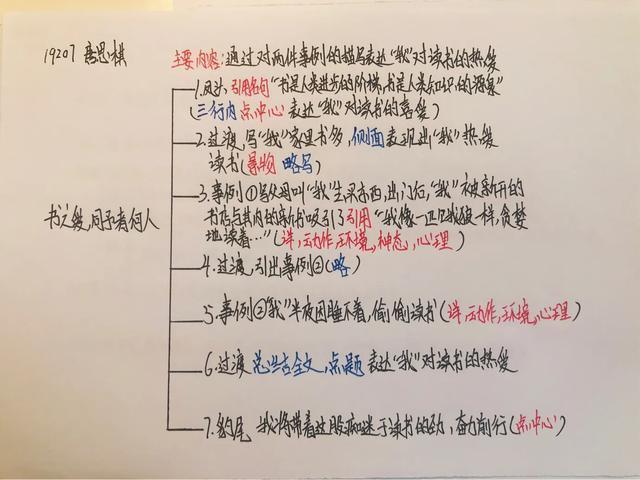 19207 唐思棋
主要内容:通过对两件事例的描写表达“我”对读书的热爱
1.凤头,引用名句“书是人类进步的阶梯,书是人类知识的源泉”
(三行内点中心 表达“我”对读书的喜爱
2.过渡,写“我”家里书多,侧面表现出“我”热爱
读书(事物 略写)
书之爱,同予者何人
3.事例①写父母叫“我”去买东西,出门后,“我”被新开的
书店与其内的新书吸引了引用“我像一匹饿狼一样,贪婪
地读着…”(详,动作,环境,神态,心理)
4.过渡,引出事例②(略)
5.事例②“我”半夜因睡不着,偷偷读书(详,动作,环境,心理)
6.过渡 总结全文,点题 表达“我”对读书的热爱
7.豹尾 我将带着这股痴迷于读书的劲,奋力前行(点中心)